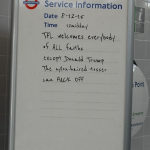 Service Information
Date 8-12-15
Time
TFL welcomes everybody
of ALL faiths
except Donald Trump
The
can FUCK OFF